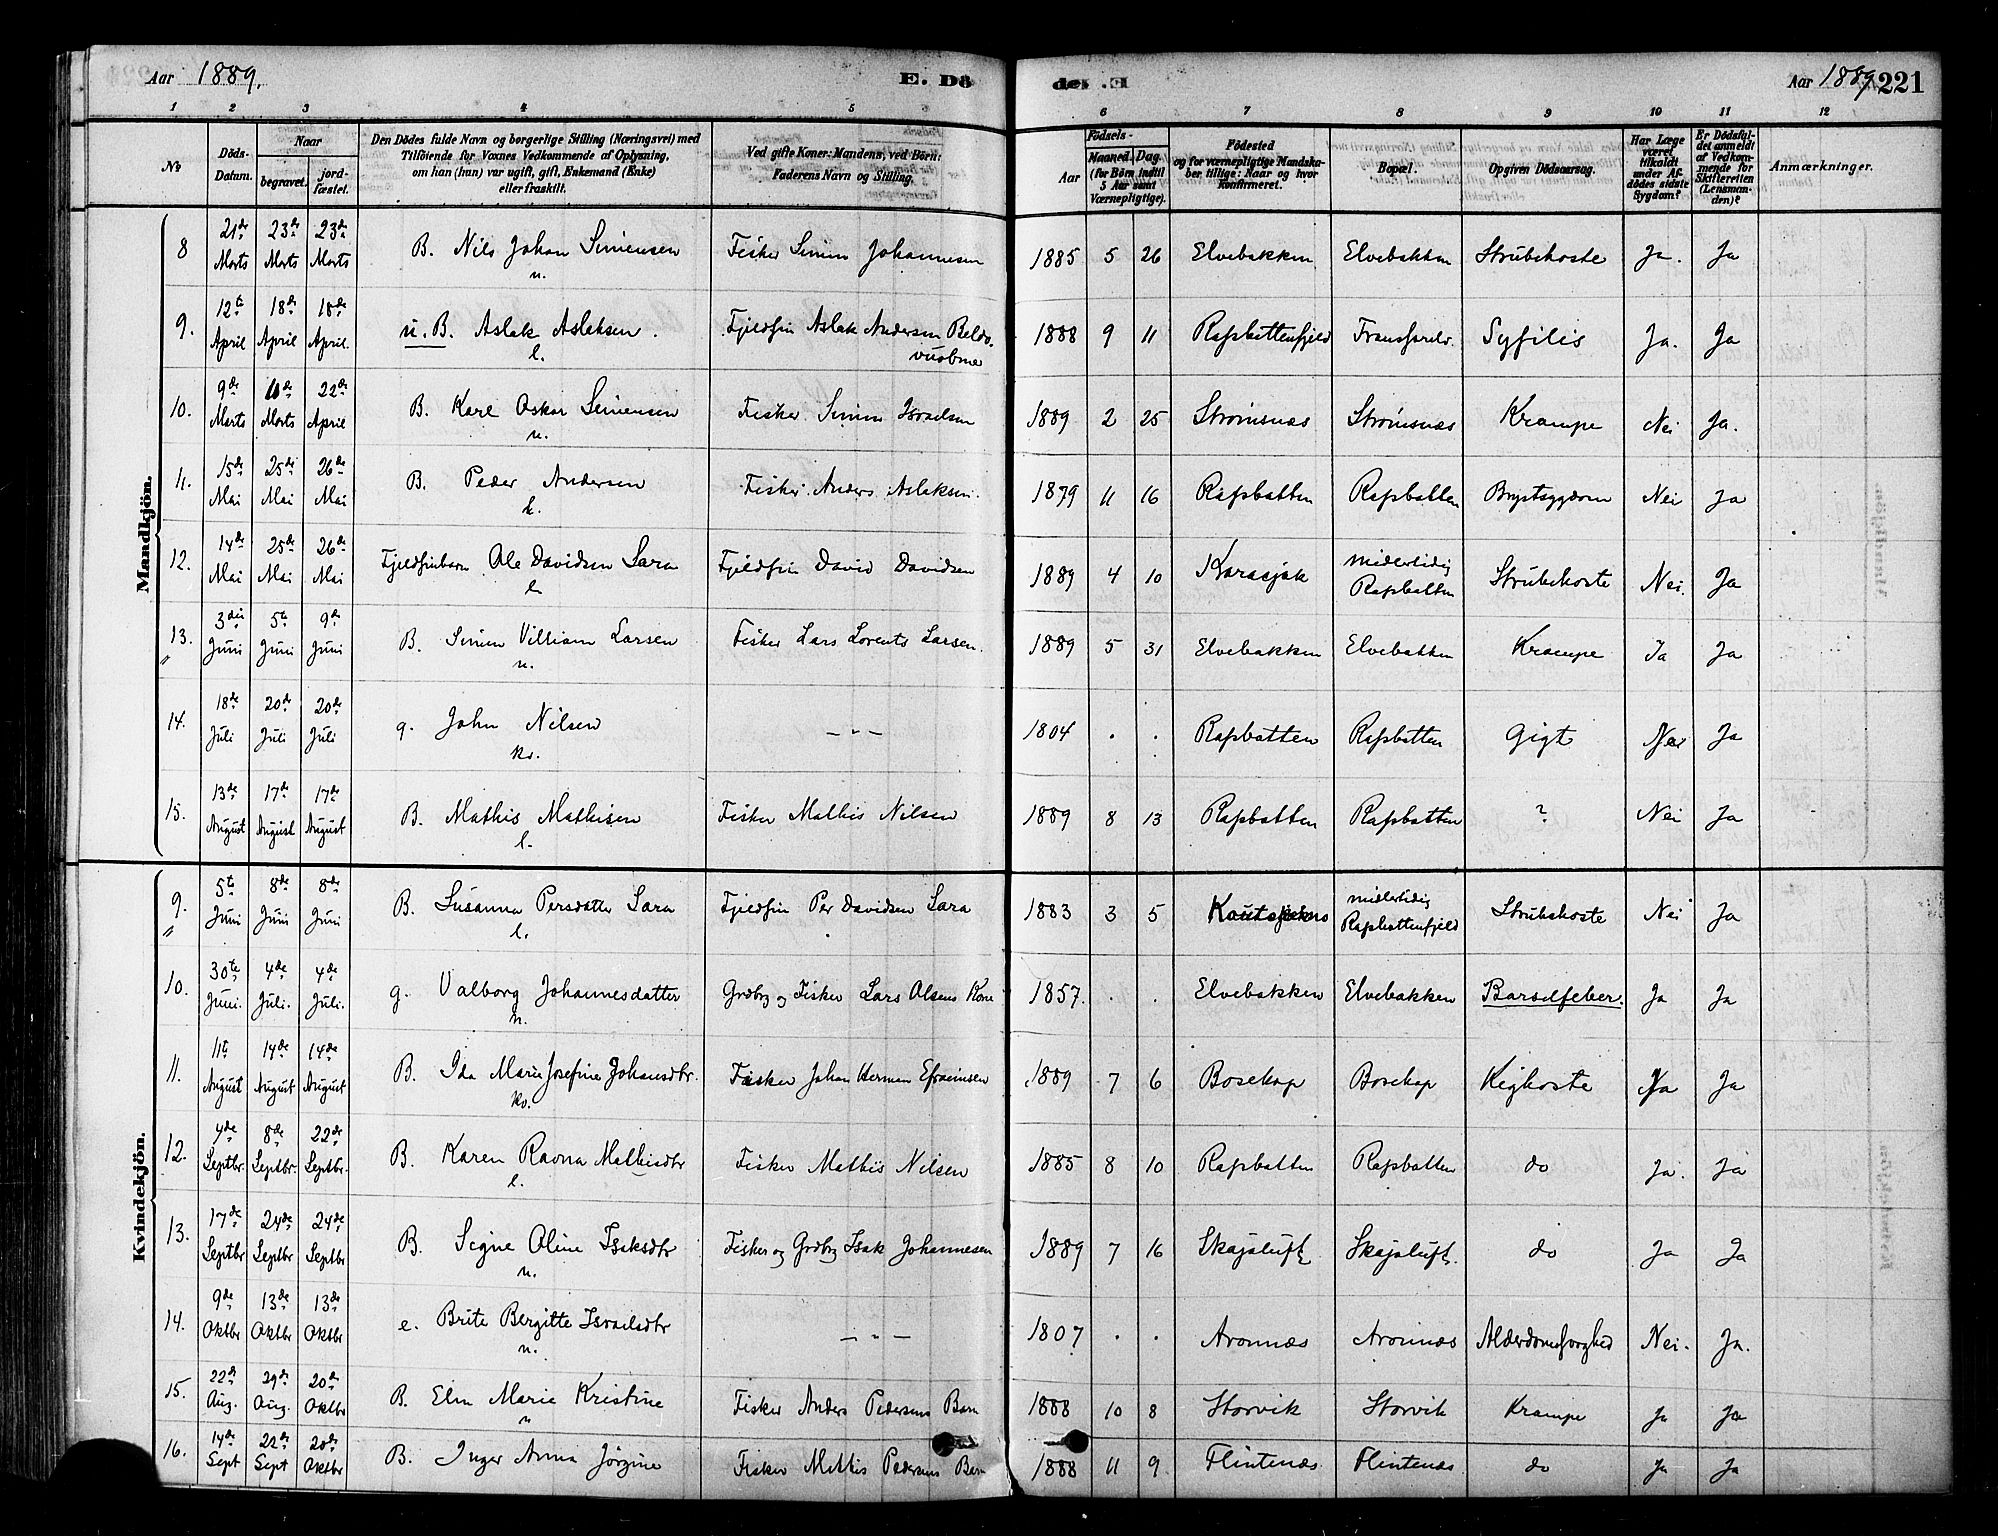 Aar 1889. E. Dö
de. E. Aar 1889 221
1 2 3 4 5 6 7 8 9 10 11 12
No Döds-Datum. Naar begravet. jord-fæstet. Den Dödes fulde Navn og borgerlige Stilling (Næringsvei) med Tilföiende for Voxnes Vedkommende af Oplysning, om han (hun) var ugift, gift, Enkemand (Enke) eller fraskilt. Ved gifte Koner: Mandens, ved Börn: Faderens Navn og Stilling. Födsels- Aar Maaned. Dag. (for Börn indtil 5 Aar samt Værnepligtige). Födested og for værnepligtige Mandska-ber tillige: Naar og hvor konfirmeret. Bopæl. Opgiven Dödsaarsag. Har Læge været tilkaldt under Af-dödes sidste Sygdom? Er Dödsfal-det anmeldt af Vedkom-mende for Skifteretten (Lensman-den)? Anmærkninger.
Mandkjön.
8 21de Marts 23de Marts 23de Marts B. Nils Johan Simensen n. Fisker Simen Johannesen 1885 5 26 Elvebakken Elvebakken Strubehoste Ja. Ja
9. 12te April 18de April 18de April. u. B. Aslak Aslaksen. l. Fjeldfin Aslak Andersen Beldovuobme 1888 9 11 Rafsbottenfjeld Syfilis Ja. Ja
10. 9de Marts Marts 22de April B. Karl Oskar Simensen n. Fisker Simen Israelsen 1889 2 25 Strömsnæs Strömsnæs Krampe Nei Ja.
11. 15de Mai 25de Mai 26de Mai B. Peder Andersen l. Fisker Anders Aslaksen. 1879 11 16 Rafsbotten Rafsbotten Brystsygdom Nei Ja
12. 14de Mai 25de Mai 26de Mai Fjeldfinbarn Ole Davidsen Sara l. Fjeldfin David Davidsen 1889 4 10 Karasjok midlertidig Rafsbotten Strubehoste Nei. Ja
13. 3die Juni 5te Juni 9de Juni B. Simen Villiam Larsen n. Fisker Lars Lorents Larsen. 1889 5 31 Elvebakken Elvebakken Krampe Ja Ja
14. 18de Juli 20de Juli 20de Juli g. John Nilsen kv. — " — 1804 . . Rafsbotten Rafsbotten Gigt Nei Ja
15. 13de August 17de August 17de August B. Mathis Mathisen l. Fisker Mathis Nilsen 1889 8 13 Rafsbotten Rafsbotten ? Nei Ja
Kvindekjön.
9. 5te Juni 8de Juni 8de Juni B. Susanna Persdatter Sara l. Fjeldfin Per Davidsen Sara 1883 3 5 Kautokeino midlertidig Rafsbottenfjeld Strubehoste Nei Ja
10. 30te Juni. 4de Juli. 4de Juli. g. Valborg Johannesdatter n. Grdbr og Fisker Lars Olsens Kone 1857. . . Elvebakken Elvebakken Barselfeber. Ja Ja
11. 11te August 14de August 14de August B. Ida Marie Josefine Johansdtr. kv. Fisker Johan Herman Efraimsen 1889 7 6 Bosekop Bosekop Kighoste Ja Ja
12. 4de Septbr. 8de Septbr. 22de Septbr. B. Karen Ravna Mathisdtr l. Fisker Mathis Nilsen 1885 8 10 Rafsbotten Rafsbotten do Ja. Ja
13. 17de Septbr 24de Septbr 24de Septbr B. Signe Oline Isaksdtr n. Fisker og Grdbr Isak Johannesen 1889 7 16 Skajaluft Skajaluft. do Ja Ja
14. 9de Oktbr 13de Oktbr 13de Oktbr e. Brite Bergitte Israelsdtr n. — " — 1807 . . Aronnæs Aronnæs Alderdomssvaghed Nei. Ja.
15. 22de Aug. 29de Aug. 20de Oktbr B. Elen Marie Kristine n Fisker Anders Pedersens Barn 1888 10 8 Storvik Storvik Krampe Ja Ja
16. 14de Sept 22de Sept 20de Oktbr B. Inger Anna Jörgine Fisker Mathis Pedersens Barn 1888 11 9 Flintenæs Flintenæs do Ja Ja